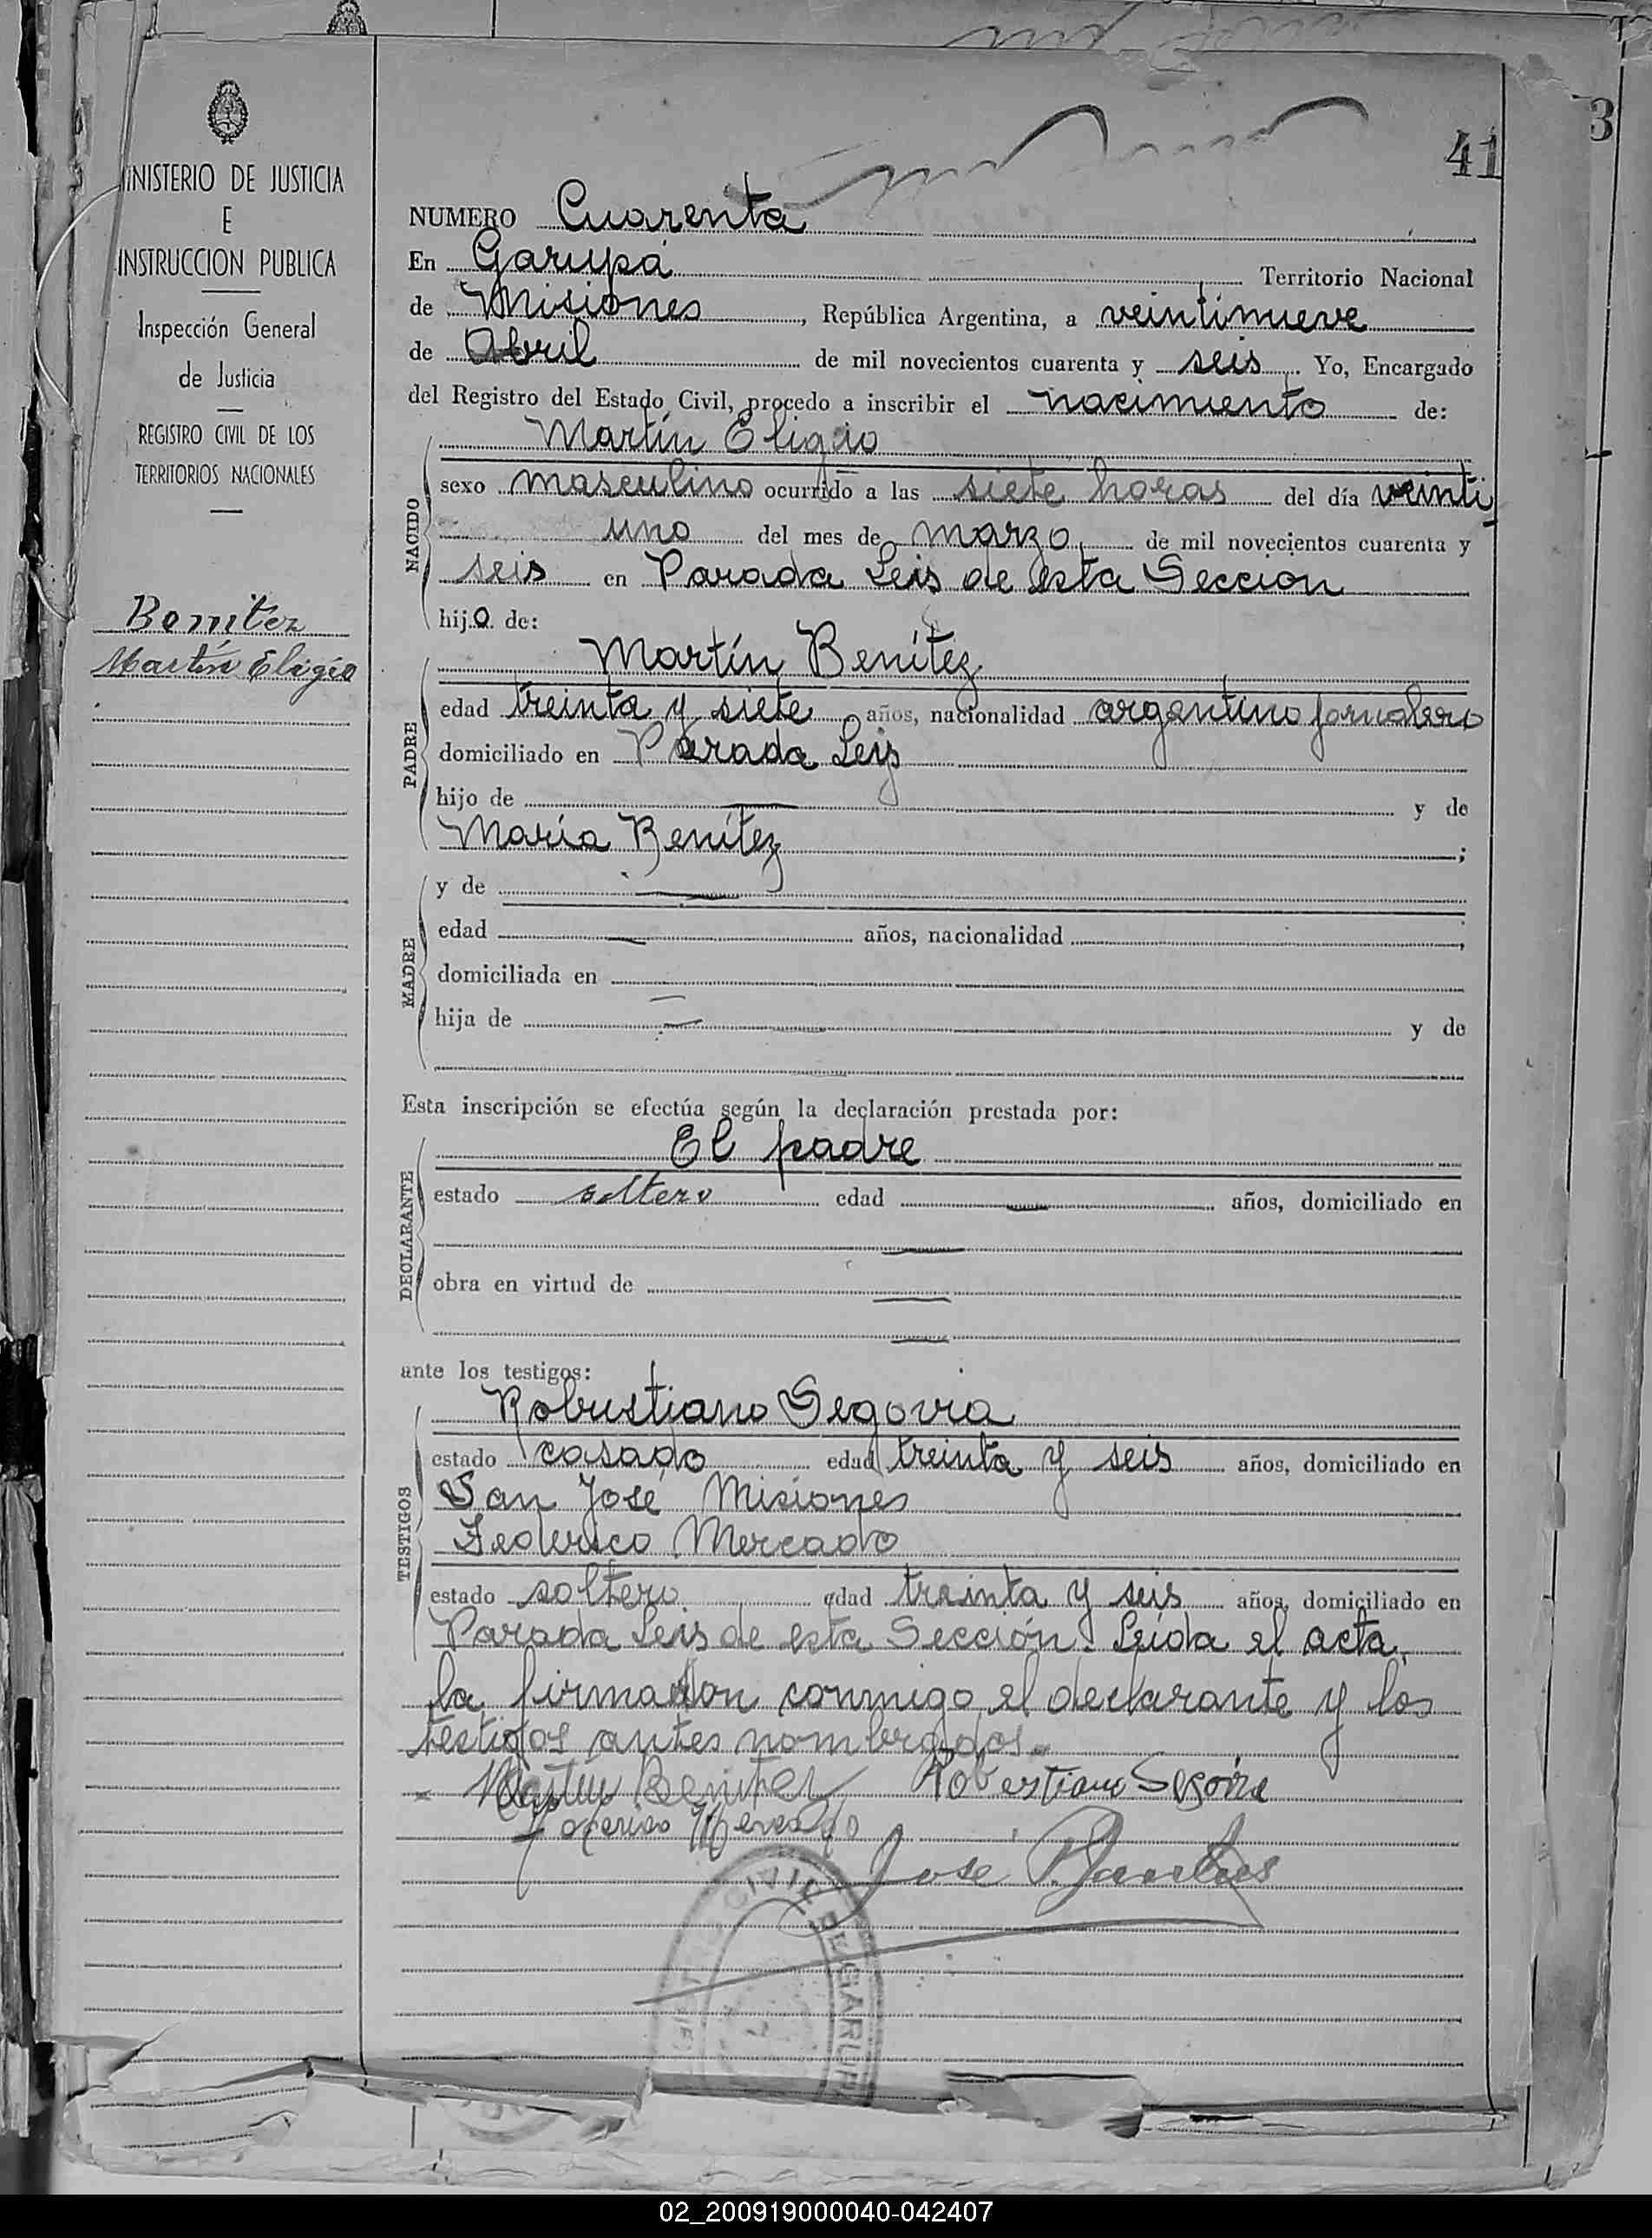 41
3
MINISTERIO DE JUSTICIA
E
INSTRUCCION PUBLICA
Inspección General
de Justicia
REGISTRO CIVIL DE LOS
TERRITORIOS NACIONALES
Benítez
Martín Eligio
NUMERO Cuarenta
En Garupá Territorio Nacional
de Misiones, República Argentina, a veintinueve
de Abril de mil novecientos cuarenta y seis. Yo, Encargado
del Registro del Estado Civil, procedo a inscribir el nacimiento de:
NACIDO
Martín Eligio
sexo masculino ocurrido a las siete horas del día veinti-
uno del mes de marzo de mil novecientos cuarenta y
seis en Parada Leis de esta Sección
hijo de:
PADRE
Martín Benítez
edad treinta y siete años, nacionalidad argentino jornalero
domiciliado en Parada Leis
hijo de — y de
María Benítez ;
MADRE
y de —
edad — años, nacionalidad
domiciliada en —
hija de — y de
Esta inscripción se efectúa según la declaración prestada por:
DECLARANTE
El padre
estado soltero edad — años, domiciliado en
—
obra en virtud de —
—
ante los testigos:
TESTIGOS
Robustiano Segovia
estado casado edad treinta y seis años, domiciliado en
San José Misiones
Federico Mercado
estado soltero edad treinta y seis años, domiciliado en
Parada Leis de esta Sección. Leída el acta,
la firmaron conmigo el declarante y los
testigos antes nombrados.-
Martin Benitez Robustiano Segovia
Federico Mercado
Jose
CIVIL DE GARUPA
02_200919000040-042407